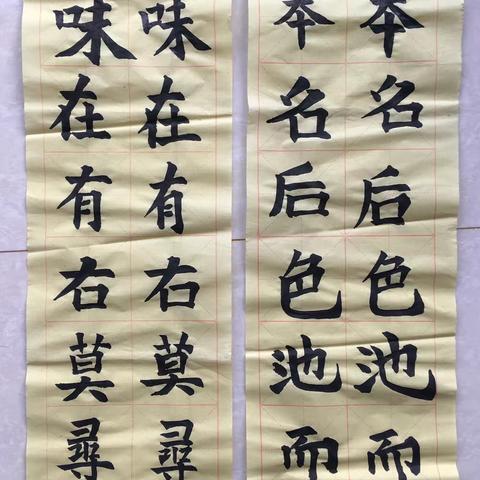 本名后色池而
本名后色池而
味在有右莫尋
味在有右莫尋